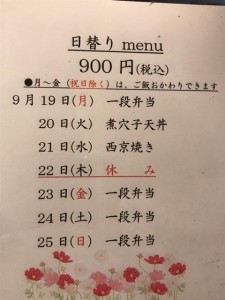 日替り menu
900 円(税込)
●月～金(祝日除く)は、ご飯おかわりできます
9 月 19 日(月) 一段弁当
20 日(火) 煮穴子天丼
21 日(水) 西京焼き
22 日(木) 休 み
23 日(金) 一段弁当
24 日(土) 一段弁当
25 日(日) 一段弁当